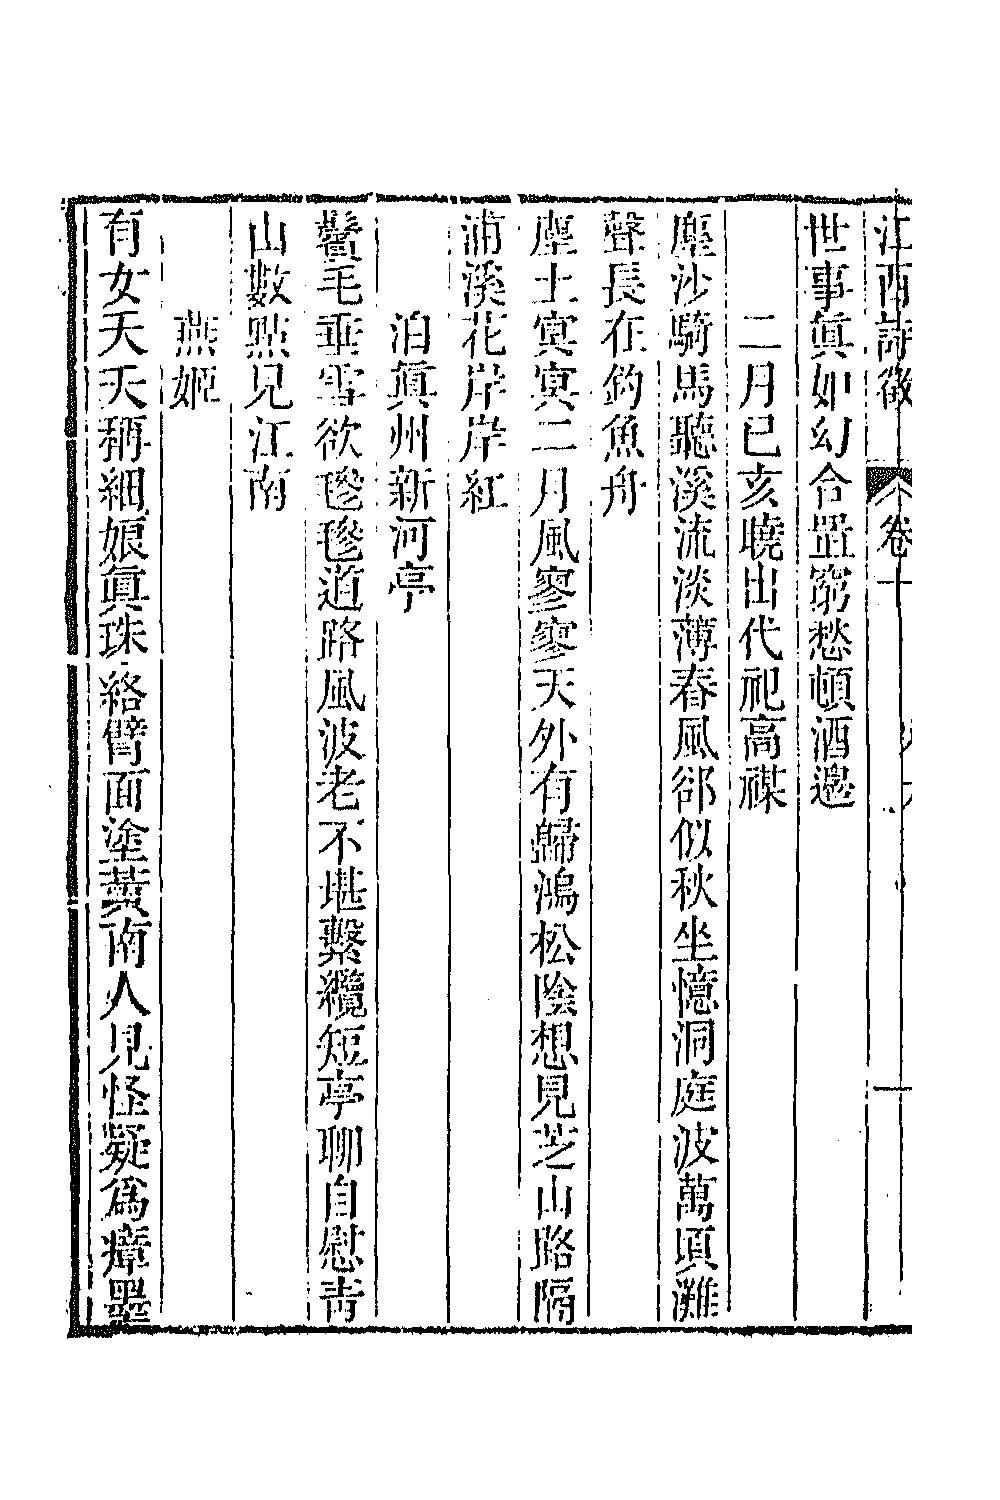 江西詩徵　卷十
世事眞如幻合置窮愁頓酒邊
二月已亥曉出代祀高禖
塵沙騎馬聽溪流淡薄春風郤似秋坐憶洞庭波萬頃灘
聲長在釣魚舟
塵土㝠㝠二月風寥寥天外有歸鴻松陰想見芝山路隔
浦溪花岸岸紅
泊眞州新河亭
鬢毛垂雪欲毿毿道路風波老不堪繫纜短亭聊自慰靑
山數點見江南
燕姬
有女夭夭稱細娘眞珠絡臂面塗黃南人見怪疑爲瘴墨